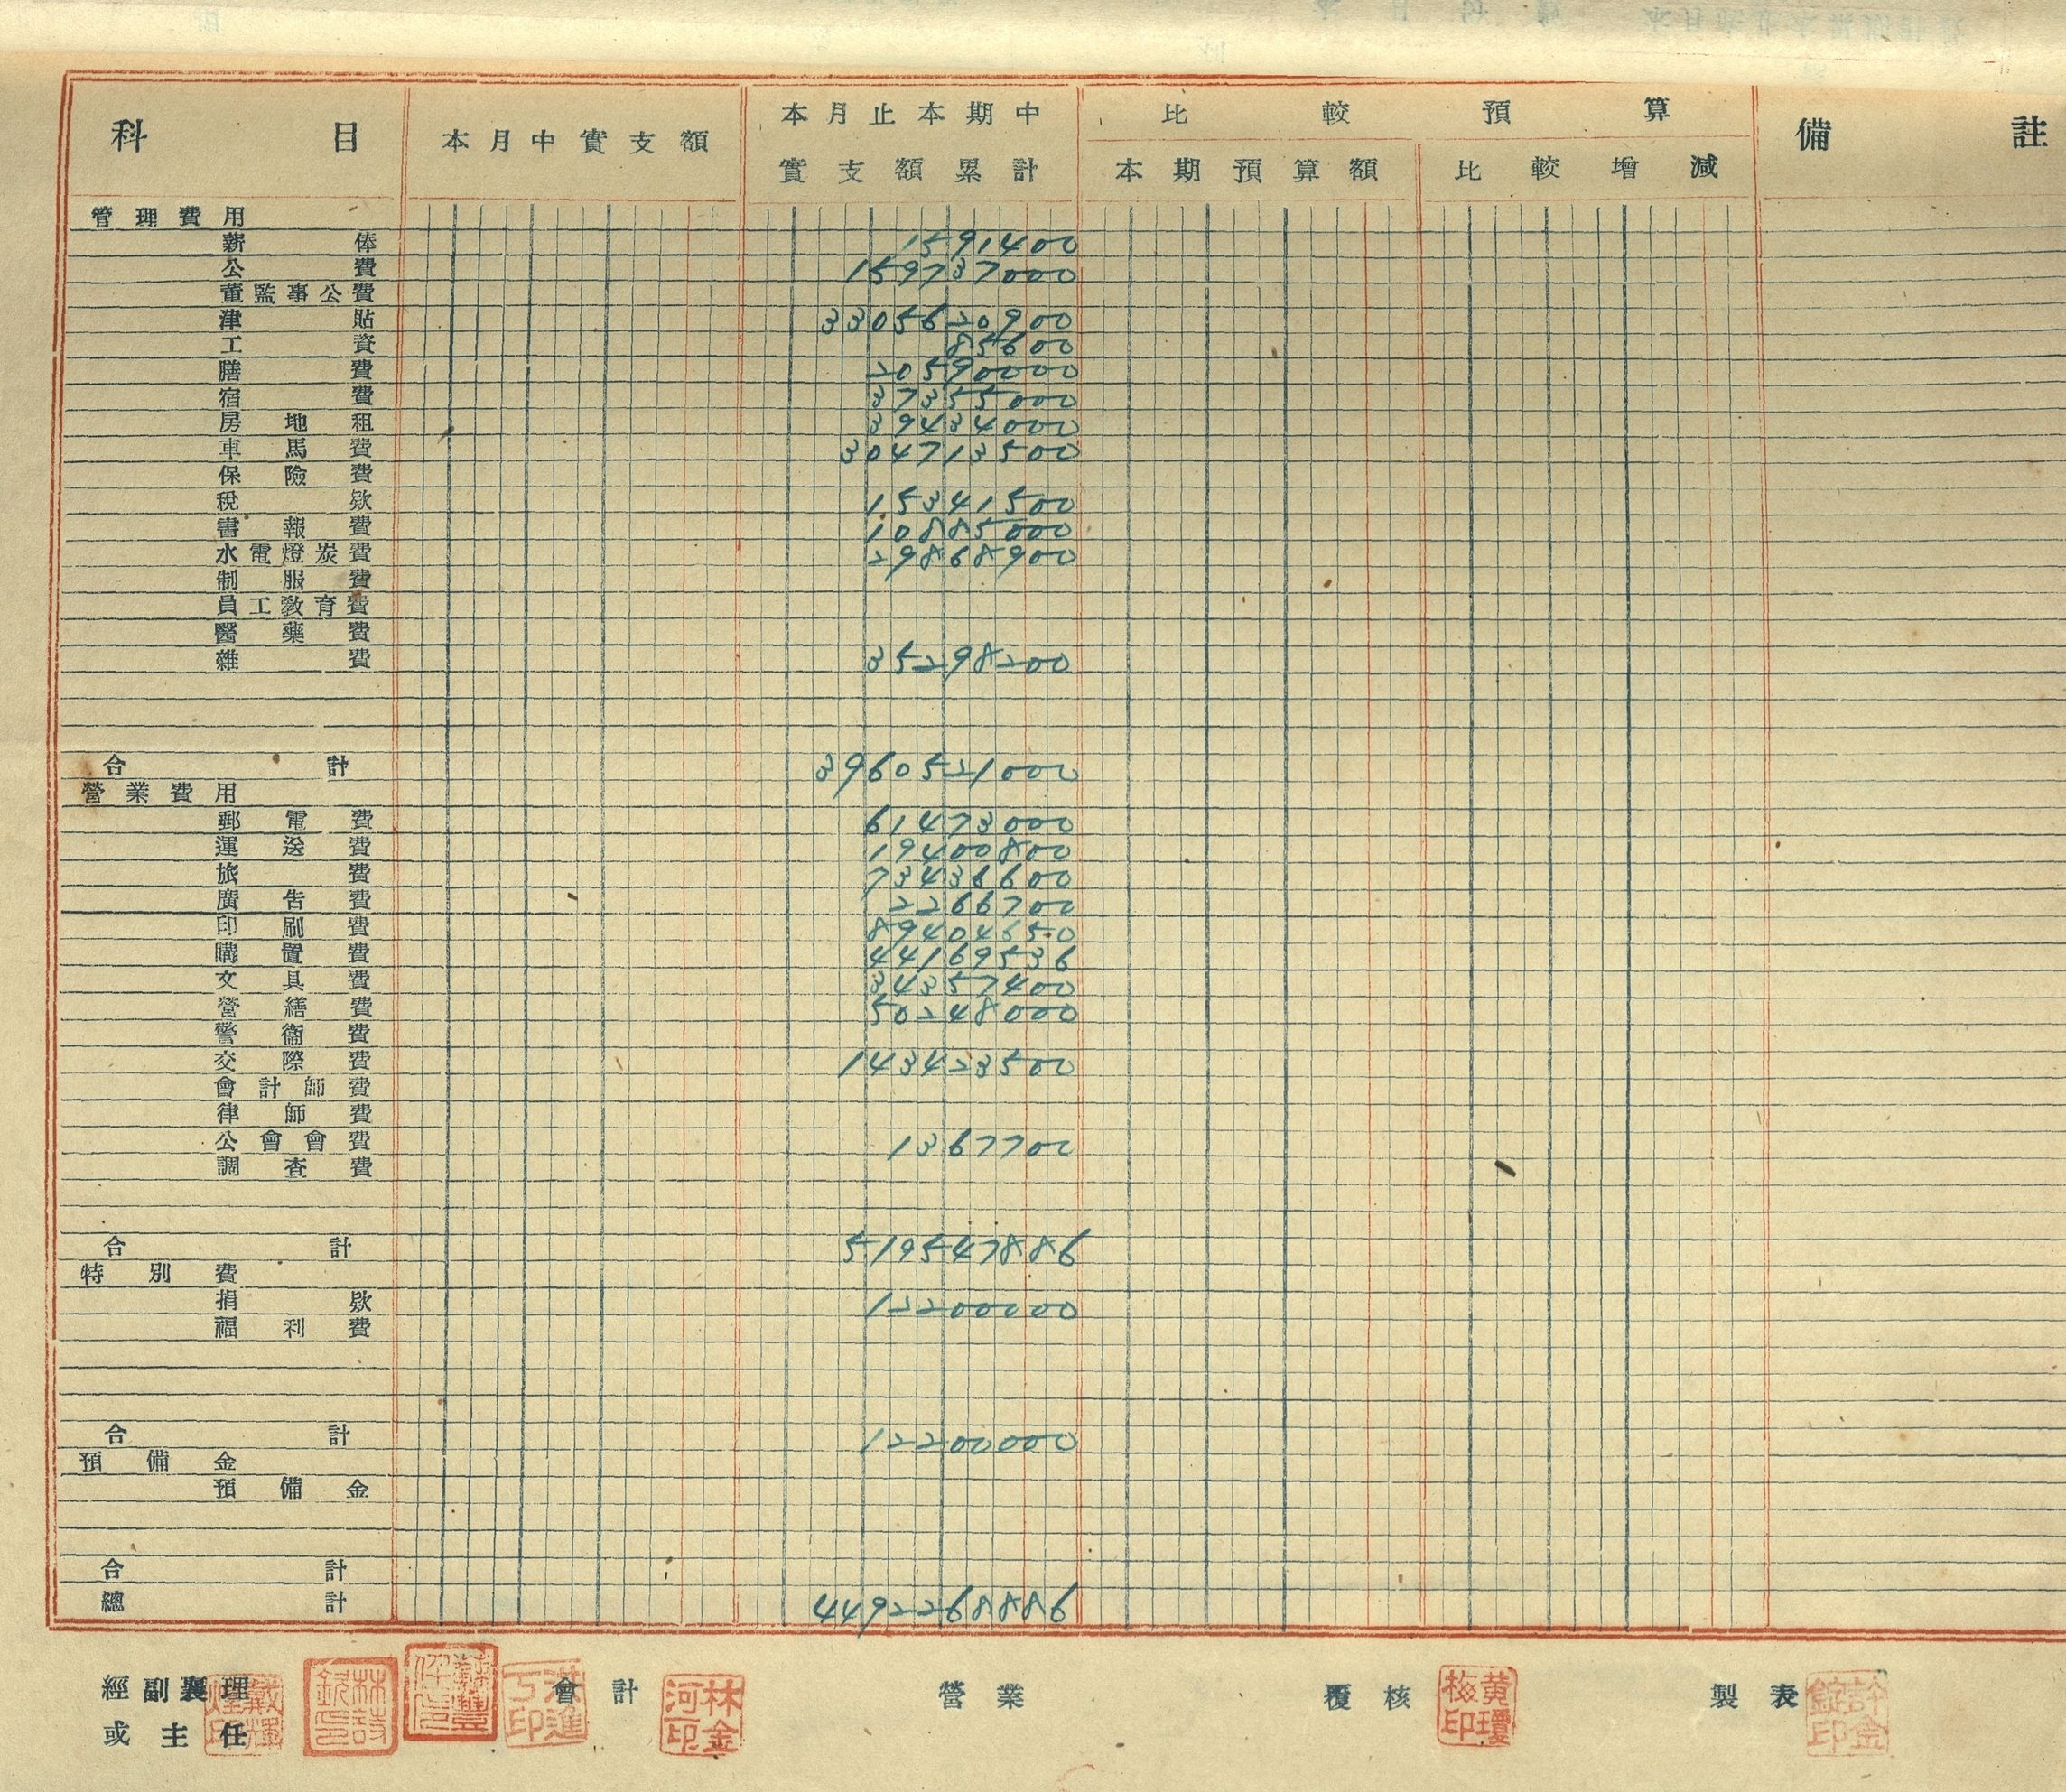 科目 本月中實支額 本月止本期中實支額累計 比較預算 備註
本期預算額 比較增減
管理費用
薪俸 1591400
公費 159737000
董監事公費
津貼 3305620900
工資 85600
膳費 20590000
宿費 37355000
房地租 39434000
車馬費 304713500
保險費
稅欵 15341500
書報費 10885000
水電燈炭費 29868900
制服費
員工敎育費
醫藥費
雜費 35298200
合計 3960521000
營業費用
郵電費 61473000
運送費 19400800
旅費 73436600
廣告費 2266700
印刷費 89404650
購置費 44169536
文具費 34357400
營繕費 50248000
警衞費
交際費 143423500
會計師費
律師費
公會會費 1367700
調查費
合計 519547886
特別費
捐欵 12200000
福利費
合計 12200000
預備金
預備金
合計
總計 4492268886
經副襄理 會計 營業 覆核 製表
或主任
林詩欽印
洪進丁印
林金河印
黃瓊梅印
許金錠印